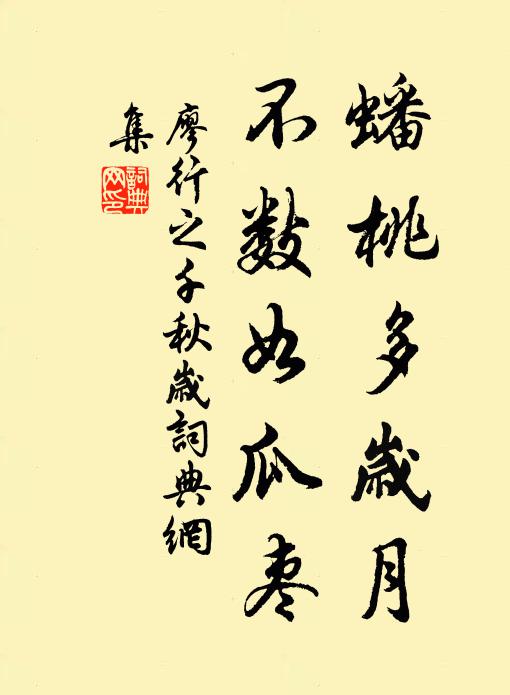 蟠桃多歲月
不數如瓜棗
廖行之千秋歲詞典網
集
詞典
网印